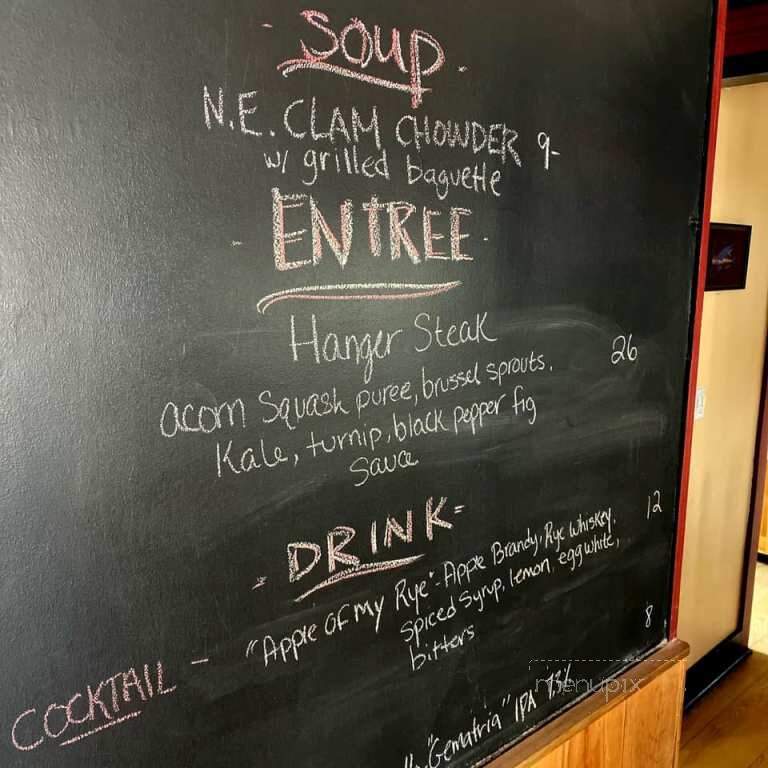 - SOUP -
N.E. CLAM CHOWDER 9-
w/ grilled baguette
- ENTREE -
Hanger Steak
26
acorn Squash puree, brussel sprouts,
Kale, turnip, black pepper fig
Sauce
- DRINK -
12
COCKTAIL - "Apple OF My Rye" - Apple Brandy, Rye Whiskey,
Spiced Syrup, lemon, egg white,
bitters
8
"Gematria" IPA
menupix